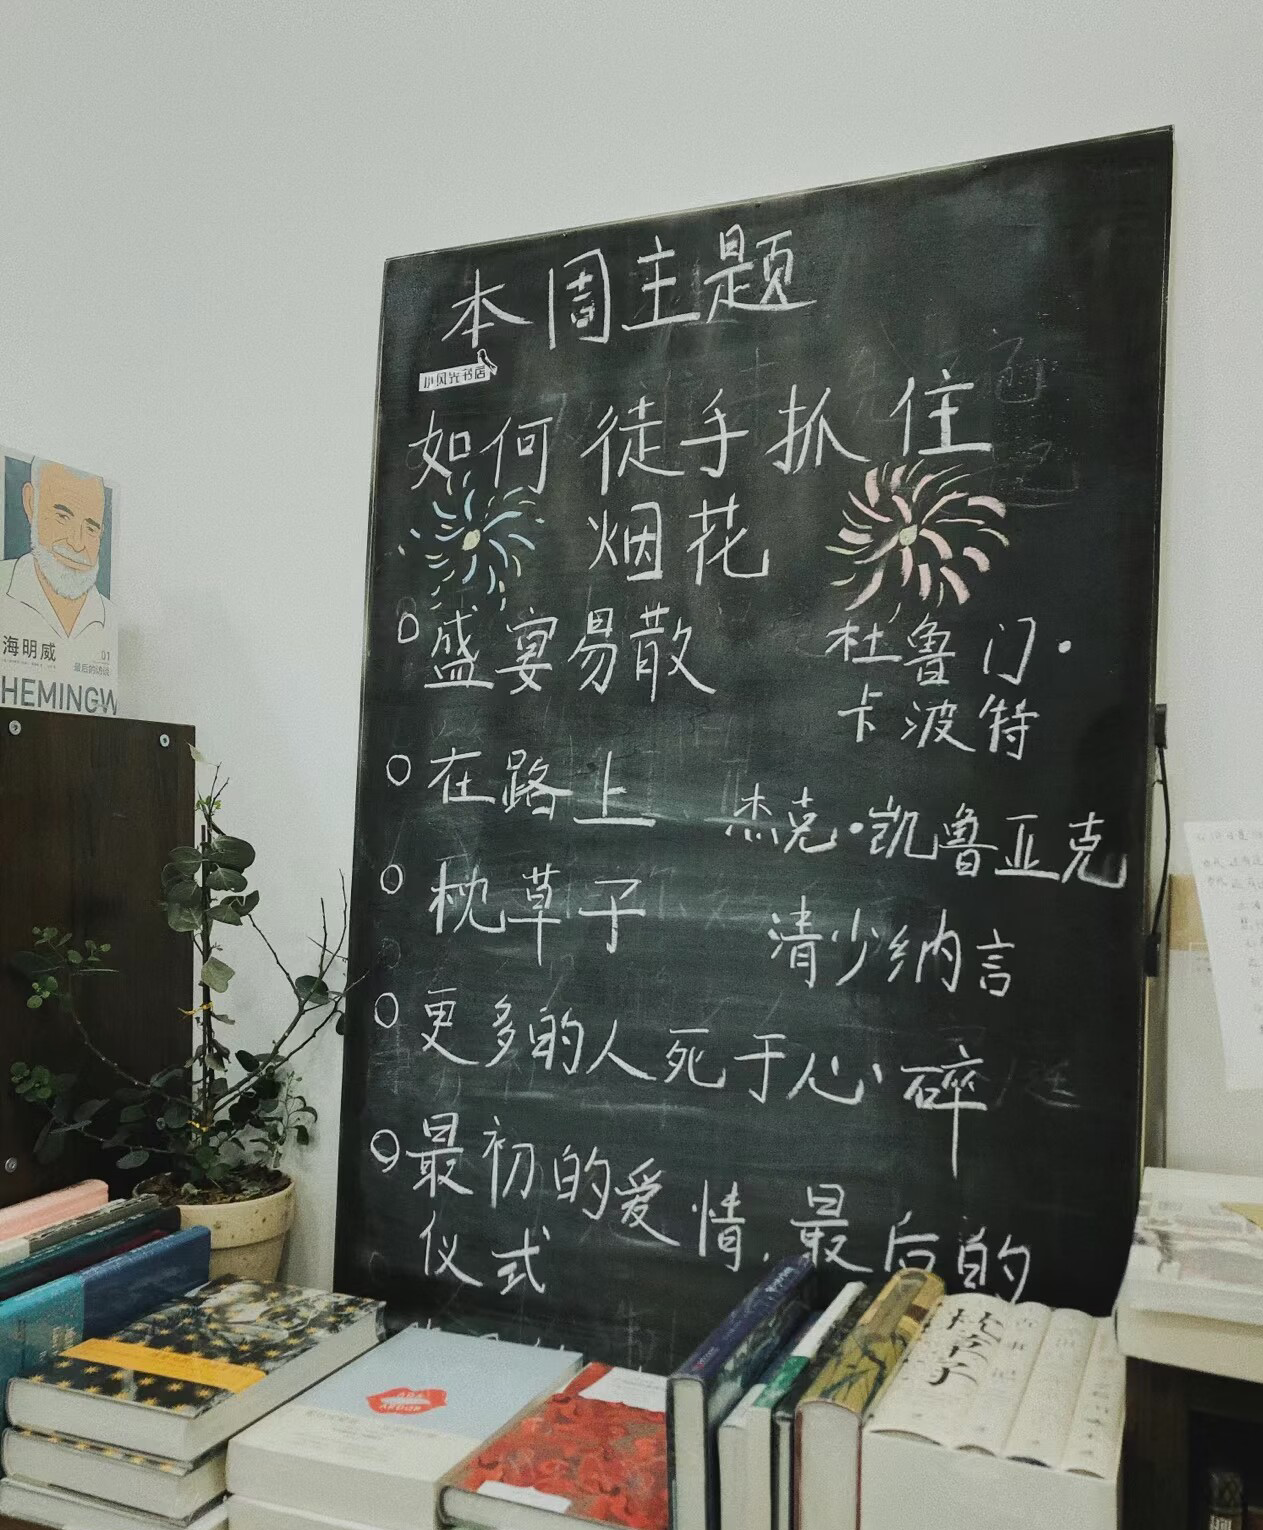 本周主题
小风光书店
如何徒手抓住
烟花
盛宴易散 杜鲁门·
卡波特
在路上 杰克·凯鲁亚克
枕草子 清少纳言
更多的人死于心碎
最初的爱情,最后的
仪式
海明威
01
最后的访谈
HEMINGW
枕草子